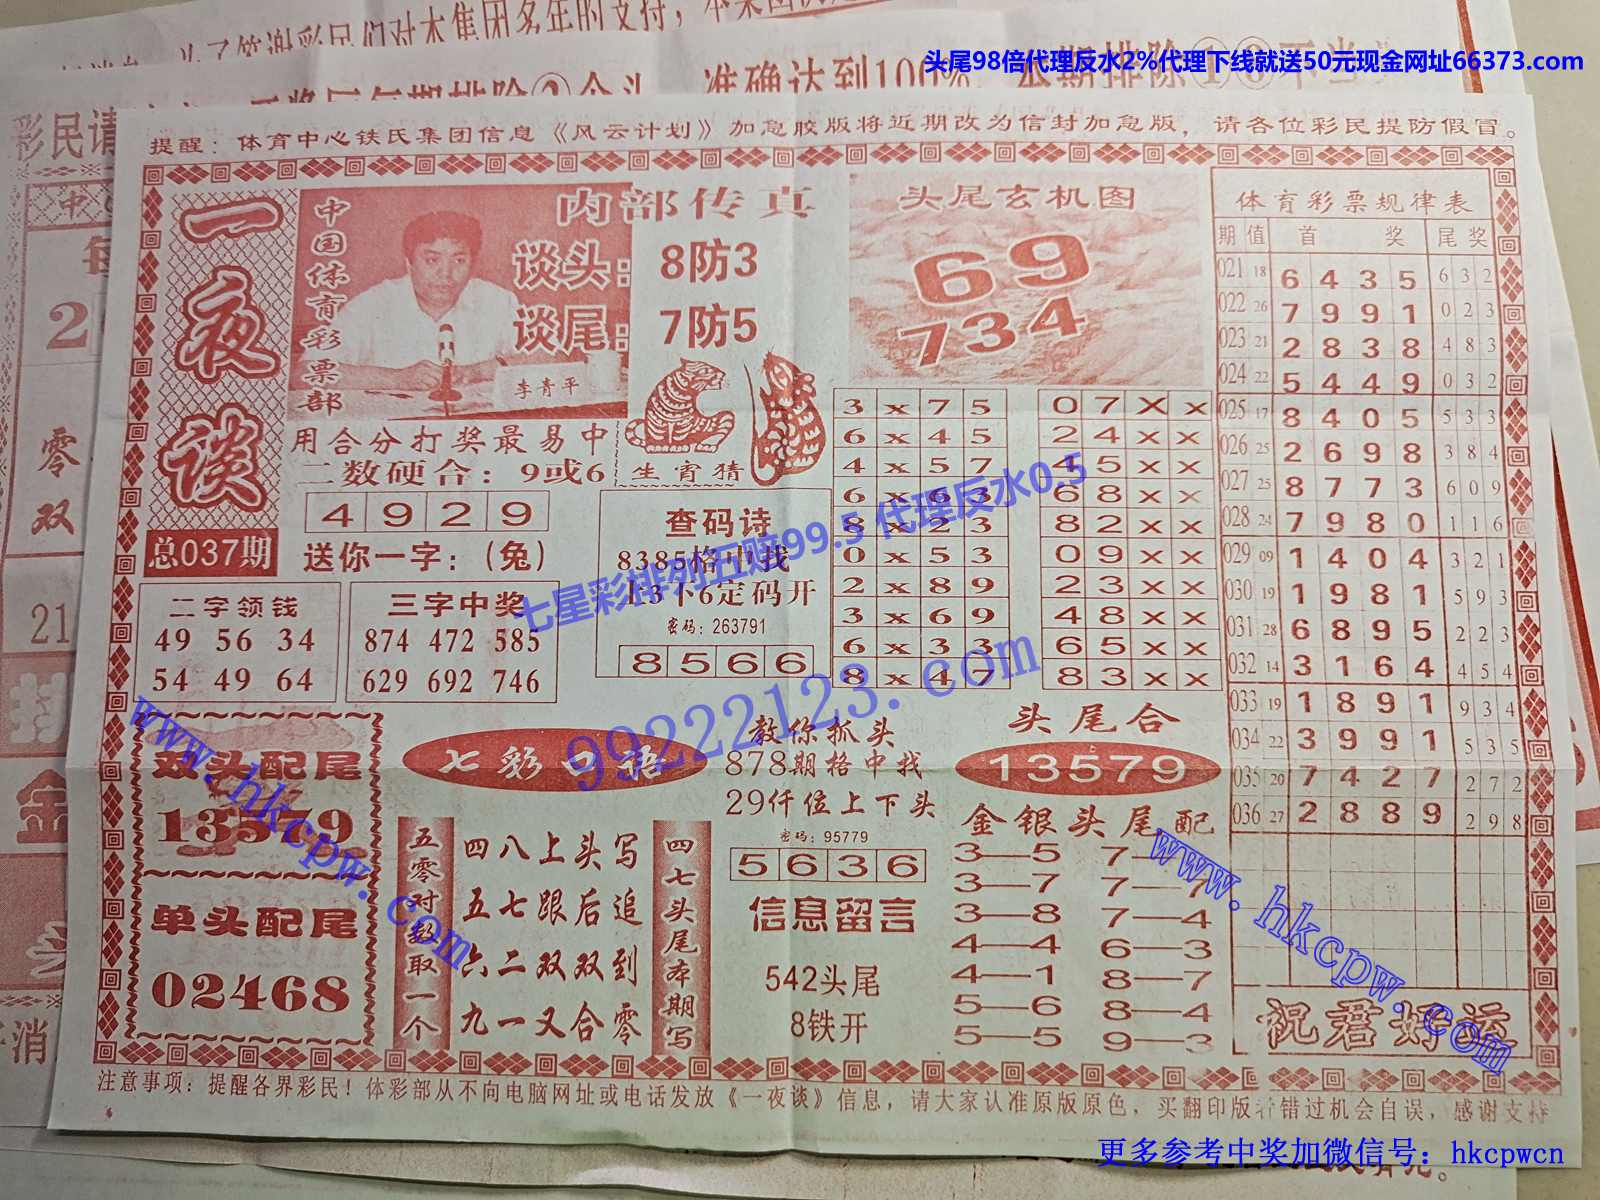 头尾98倍代理反水2%代理下线就送50元现金网址66373.com
提醒：体育中心铁氏集团信息《风云计划》加急胶版将近期改为信封加急版，请各位彩民提防假冒。
一夜谈
总037期
中国体育彩票部
内部传真
谈头：8防3
谈尾：7防5
李青平
用合分打奖最易中
二数硬合：9或6
4 9 2 9
送你一字：(兔)
生宵猜
头尾玄机图
69
734
查码诗
8385格中找
上3下6定码开
密码：263791
8 5 6 6
二字领钱
49 56 34
54 49 64
三字中奖
874 472 585
629 692 746
3 x 7 5
6 x 4 5
4 x 5 7
6 x 6 3
8 x 2 3
0 x 5 3
2 x 8 9
3 x 6 9
6 x 3 3
8 x 4 7
0 7 X X
2 4 x x
4 5 x x
6 8 x x
8 2 x x
0 9 x x
2 3 x x
4 8 x x
6 5 x x
8 3 x x
体育彩票规律表
期 值 首 奖 尾 奖
021 18 6 4 3 5 6 3 2
022 26 7 9 9 1 0 2 3
023 21 2 8 3 8 4 8 3
024 22 5 4 4 9 0 3 2
025 17 8 4 0 5 5 3 3
026 25 2 6 9 8 3 8 4
027 25 8 7 7 3 6 0 9
028 24 7 9 8 0 1 1 6
029 09 1 4 0 4 3 2 1
030 19 1 9 8 1 5 9 3
031 28 6 8 9 5 2 2 3
032 14 3 1 6 4 4 5 4
033 19 1 8 9 1 9 3 4
034 22 3 9 9 1 5 3 5
035 20 7 4 2 7 2 7 2
036 27 2 8 8 9 2 9 8
祝君好运
双头配尾
13579
单头配尾
02468
七彩口语
五零对数取一个
四八上头写
五七跟后追
六二双双到
九一又合零
四七头尾本期写
教你抓头
878期格中找
29仟位上下头
密码：95779
5 6 3 6
信息留言
542头尾
8铁开
头尾合
13579
金银头尾配
3—5
3—7 7—7
3—8 7—4
4—4 6—3
4—1 8—7
5—6 8—4
5—5 9—3
注意事项：提醒各界彩民！体彩部从不向电脑网址或电话发放《一夜谈》信息，请大家认准原版原色，买翻印版者错过机会自误，感谢支持
七星彩排列五赔99.5 代理反水0.5
99222123.com
www.hkcpw.com
www.hkcpw.com
更多参考中奖加微信号：hkcpwcn